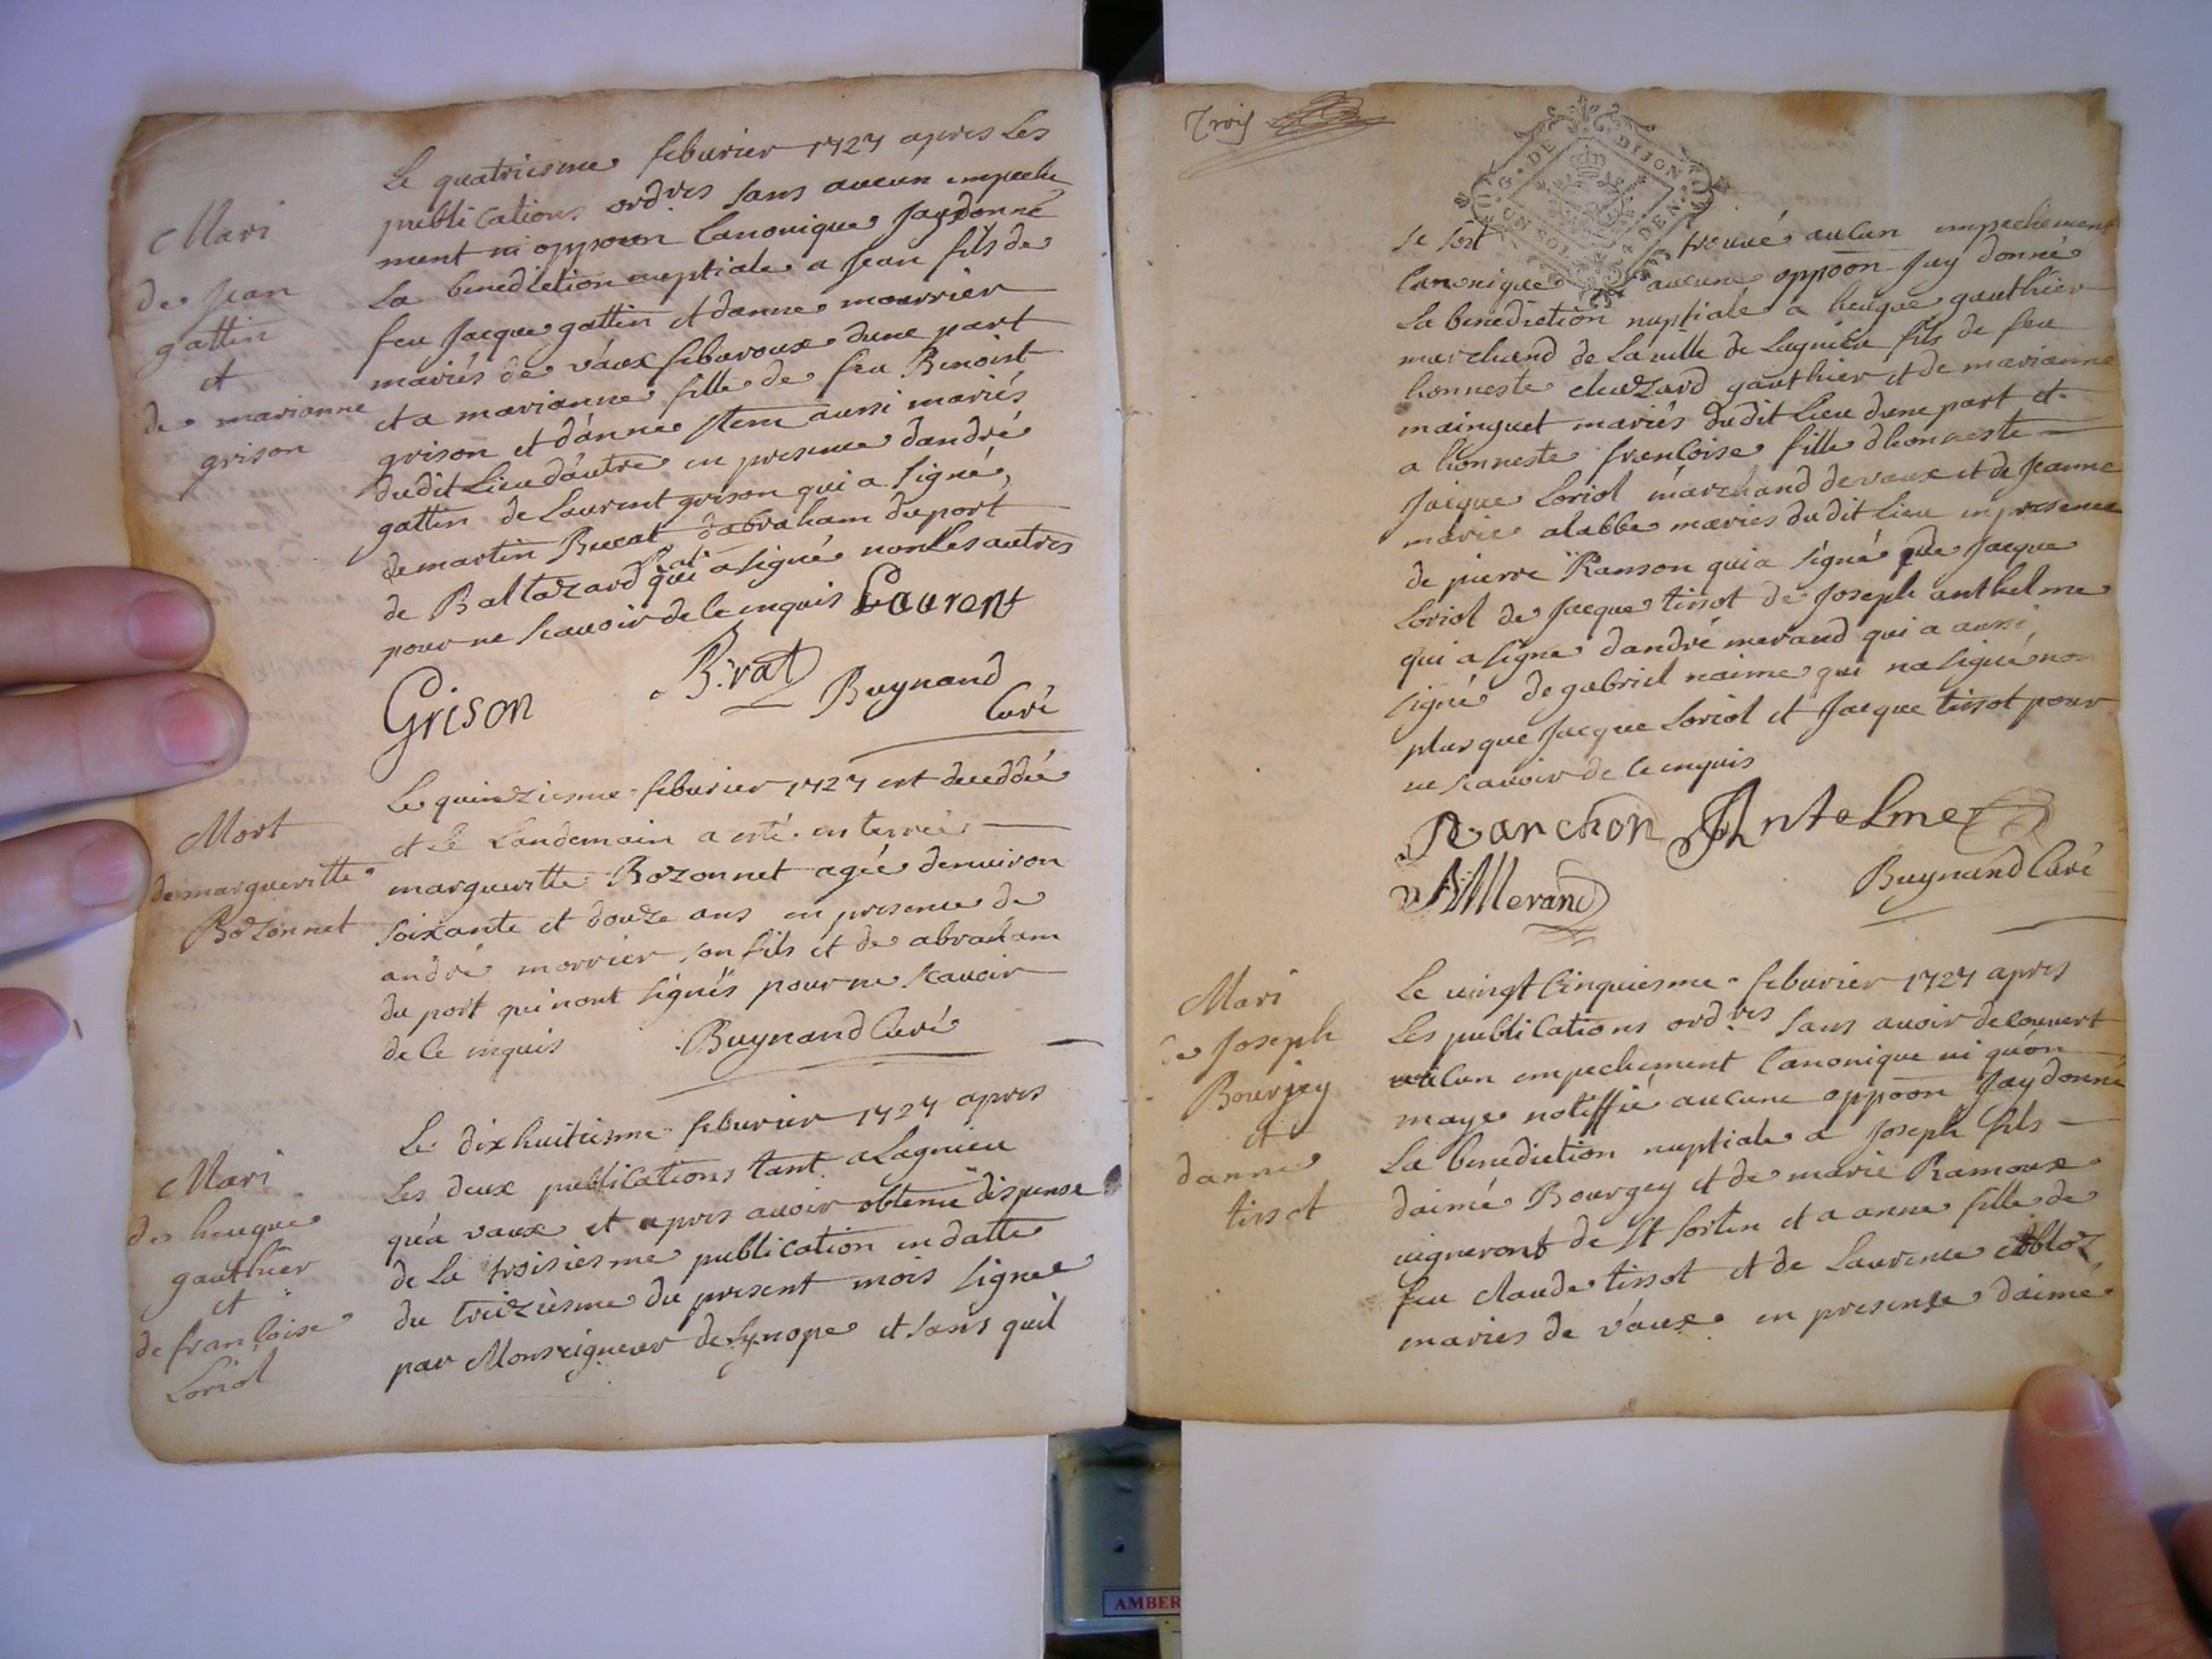 Mari
de Jean
gattin
et
de marianne
grison
Le quatriesme feburier 1727 apres Les
publications ordres sans aucun empeche
ment ni oppoōn Canonique Jay donné
La benediction nuptiale a Jean fils de
feu Jacque gattin et danne mourrier
mariés de vaux feburoux dune part
et a marianne fille de feu Benoist
grison et danne Item aussi mariés
dudit Lieu dautre en presence dandré
gattin de Laurent grison qui a signé,
de martin Bucat dabraham duport
de Baltazard Rat qui a signé non Les autres
pour ne scauoir de ce enquis Laurent
Grison B.rat Buynand
Curé
Mort
de margueritte
Bozonnet
Le quinziesme feburier 1727 est deceddée
et le Landemain a esté enterrée
margueritte Bozonnet agée denuiron
soixante et douze ans en presence de
andré morrier son fils et de abraham
du port qui nont signés pour ne scauoir
de ce enquis Buynand Curé
Mari
de heugue
gauthier
et
de francoise
Loriol
Le dixhuitiesme feburier 1727 apres
Les deux publications tant a Lagnieu
qu'a vaux et apres auoir obtenu dispense
de La troisiesme publication en datte
du treiziesme du present mois signee
par Monseigneur de Synope et sans quil
Trois
G. DE DIJON
UN SOL 4 DEN.
se soit trouué aucun empechement
Canonique aucune oppoōn Jay donné
La benediction nuptiale a heugue gauthier
marchand de La ville de Lagnieu fils de feu
honneste chazard gauthier et de marianne
mainguet mariés dudit Lieu dune part et
a honneste francoise fille dhonneste
Jacque Loriol marchand de vaux et de Jeanne
marie alabbe maries du dit Lieu en presence
de pierre Ranson qui a signé de Jacque
Loriol de Jacque tissot de Joseph anthelme
qui a signe dandré merand qui a aussi
signé de gabriel naime qui na signé non
plus que Jacque Loriol et Jacque tissot pour
ne scauoir de ce enquis
Ranchon JAntelme
A Merand Buynand Curé
Mari
de Joseph
Bourgey
et
danne
tissot
Le uingt Cinquiesme feburier 1727 apres
Les publications ordres sans auoir decouuert
aucun empechement Canonique ni quon
maye notiffié aucune oppoōn Jay donné
La benediction nuptiale a Joseph fils
daimé Bourgey et de marie Ramoux
uigneront de St sorlin et a anne fille de
feu claude tissot et de Laurence
maries de vaux en presence daimé